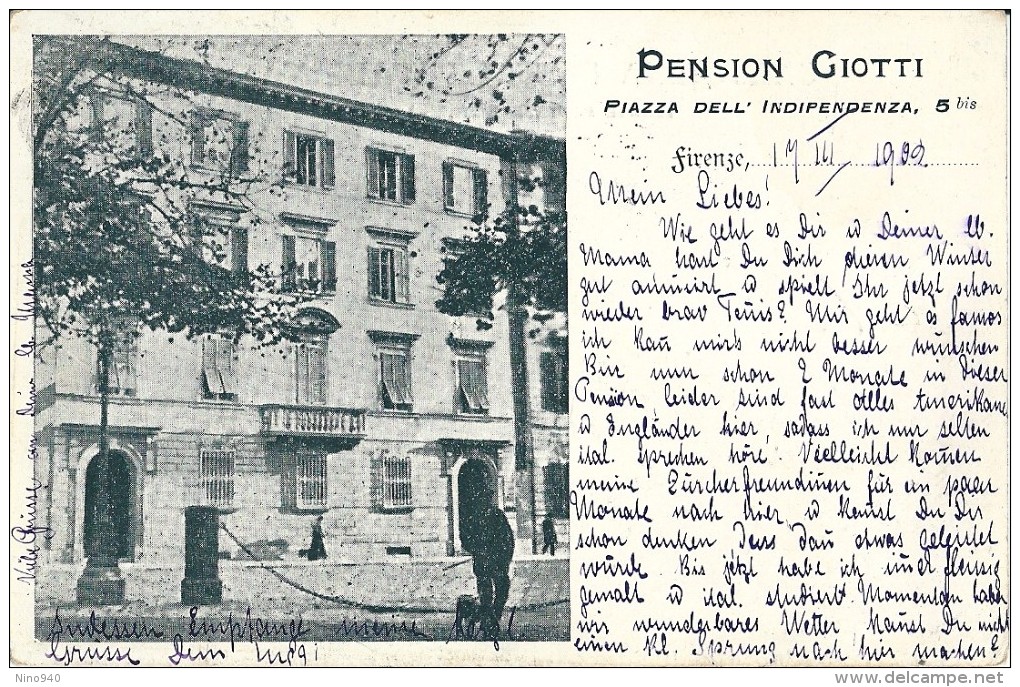 PENSION GIOTTI
PIAZZA DELL' INDIPENDENZA, 5 bis
Firenze, 17 III 1902
Mein Liebes!
Wie geht es Dir u Deiner lb.
Mama hast Du Dich diesen Winter
gut amüsirt u spielt Ihr jetzt schon
wieder brav Tenis? Mir geht es famos
ich kan mirs nicht besser wünschen
Bin nun schon 2 Monate in dieser
Pension leider sind fast alles Amerikane
u Engländer hier, sodass ich nur selten
ital. sprechen höre. Vielleicht komen
meine Zürcherfreundinen für ein paar
Monate nach hier u kanst Du Dir
schon denken dass dan etwas geleistet
würde. Bis jetzt habe ich fleissig
gemalt u ital. studiert. Momentan haben
wir wunderbares Wetter kanst Du nicht
einen kl. Sprung nach hier machen?
Indessen Empfange meine herzl.
Grüsse Dein
Viele Grüsse an Deine lb. Mama
Nino940
www.delcampe.net